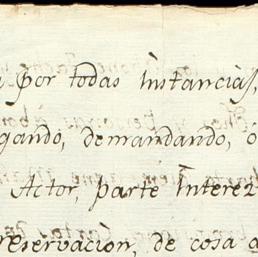 por todas Instancias,
gando, demandando, ó
Actor, parte Interez
reservacion, de cosa a